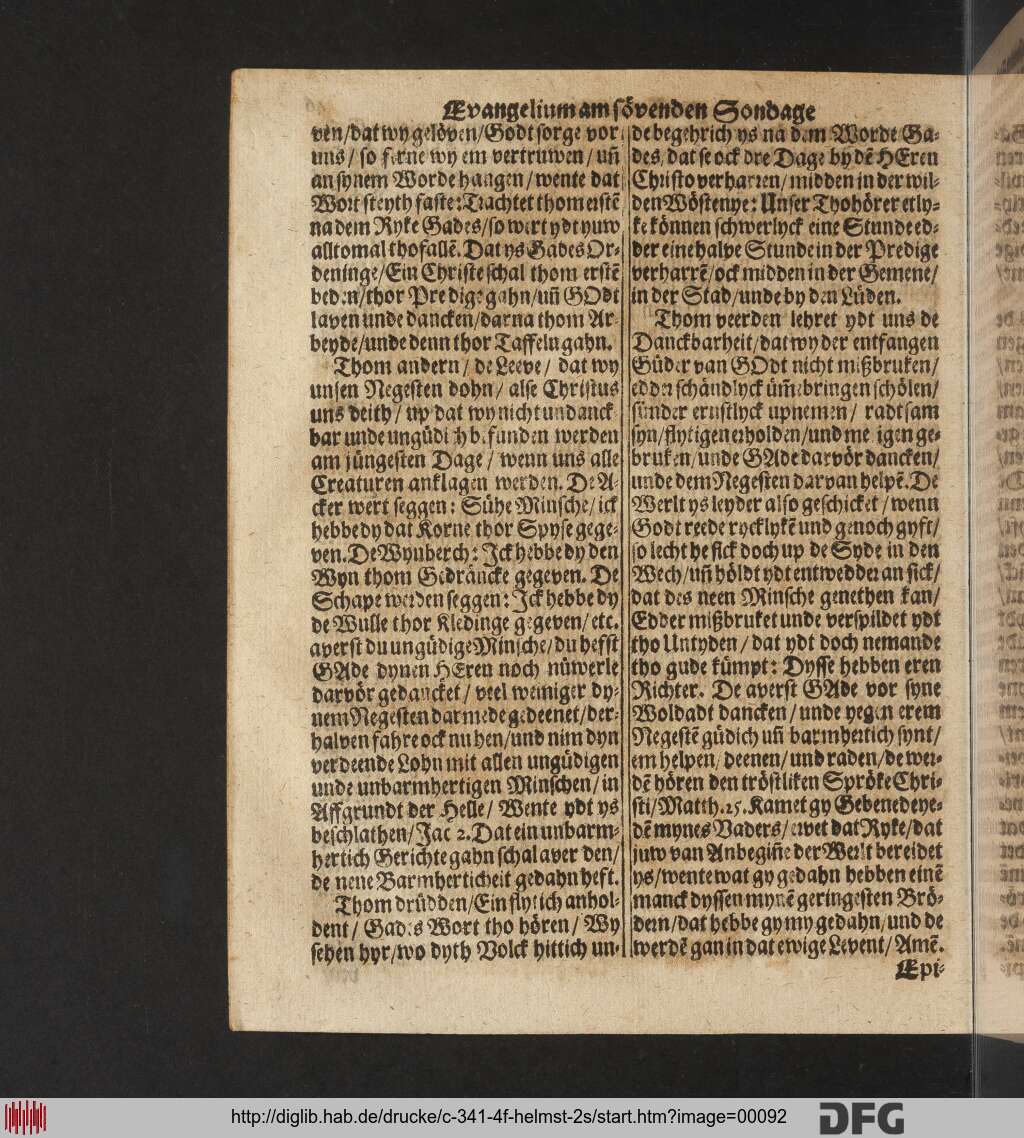 Evangelium am sövenden Sondage
ven/dat wy gelöven/Godt sorge vor
uns/ so ferne wy em vertruwen/ uñ
an synem Worde hangen/wente dat
Wort steyth faste: Trachtet thom erstē
na dem Ryke Gades/so wert ydt yuw
alltomal thofallē. Dat ys Gades Or-
deninge/Ein Christe schal thom erstē
beden/thor Predige gahn/uñ GOdt
laven unde dancken/darna thom Ar-
beyde/unde denn thor Taffeln gahn.
Thom andern/ de Leeve/ dat wy
unsen Negesten dohn/ alse Christus
uns deith/ up dat wy nicht undanck
bar unde ungüdich befunden werden
am jüngesten Dage/ wenn uns alle
Creaturen anklagen werden. De A-
cker wert seggen: Sühe Minsche/ick
hebbe dy dat Korne thor Spyse gege-
ven. De Wynberch: Ick hebbe dy den
Wyn thom Gedräncke gegeven. De
Schape werden seggen: Ick hebbe dy
de Wulle thor Kledinge gegeven/etc.
averst du ungüdige Minsche/du hefst
GAde dynen HEren noch nüwerle
darvör gedancket/ veel weiniger dy-
nem Negesten darmede gedeenet/der-
halven fahre ock nu hen/und nim dyn
verdeende Lohn mit allen ungüdigen
unde unbarmhertigen Minschen/in
Affgrundt der Helle/ Wente ydt ys
beschlathen/Jac 2. Dat ein unbarm-
hertich Gerichte gahn schal aver den/
de nene Barmherticheit gedahn heft.
Thom drüdden/Ein flytich anhol-
dent/ Gades Wort tho hören/ Wy
sehen hyr/wo dyth Volck hittich un-
de begehrich ys na dem Worde Ga-
des, dat se ock dre Dage by dē HEren
Christo verharren/midden in der wil-
den Wöstenye: Unser Thohörer etly-
ke können schwerlyck eine Stunde ed-
der eine halve Stunde in der Predige
verharrē/ock midden in der Gemene/
in der Stad/unde by den Lüden.
Thom veerden lehret ydt uns de
Danckbarheit/dat wy der entfangen
Güder van GOdt nicht mißbruken/
edder schändlyck üm̄ebringen schölen/
sünder ernstlyck upnemen/ radtsam
syn/flytigen erholden/und me igen ge-
bruken/unde GAde darvör dancken/
unde dem Negesten darvan helpē. De
Werlt ys leyder also geschicket/wenn
Godt reede rycklykē und genoch gyft/
so lecht he sick doch up de Syde in den
Wech/uñ höldt ydt entwedder an sick/
dat des neen Minsche genethen kan/
Edder mißbruket unde verspildet ydt
tho Untyden/ dat ydt doch nemande
tho gude kümpt: Dysse hebben eren
Richter. De averst GAde vor syne
Woldadt dancken/unde yegen erem
Negestē güdich uñ barmhertich synt/
em helpen/deenen/und raden/de wer-
dē hören den tröstliken Spröke Chri-
sti/Matth.25. Kamet gy Gebenedeye-
dē mynes Vaders/ervet dat Ryke/dat
juw van Anbegiñe der Werlt bereidet
ys/wente wat gy gedahn hebben einē
manck dyssen mynē geringesten Brö-
dern/dat hebbe gy my gedahn/und de
werdē gan in dat ewige Levent/Amē.
Epi-
http://diglib.hab.de/drucke/c-341-4f-helmst-2s/start.htm?image=00092
DFG